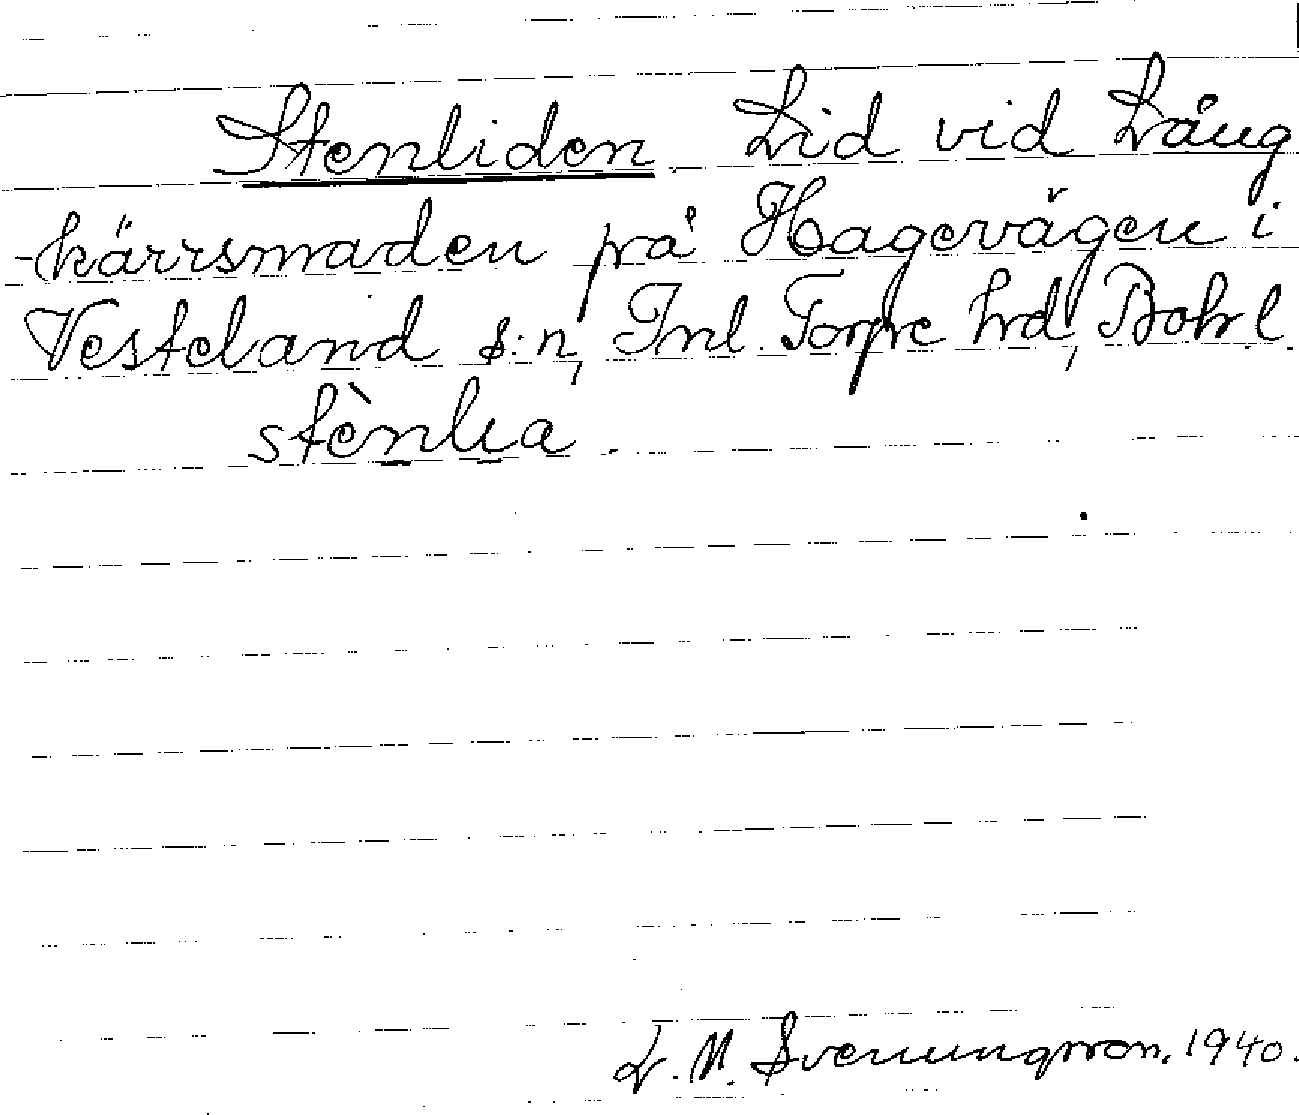 Stenliden Lid vid Lång
-kärrsmaden på Hagevägen i
Vesteland s:n, Inl. Torpe hrd, Bohrl.
stènlia
L. M. Svenungsson. 1940.